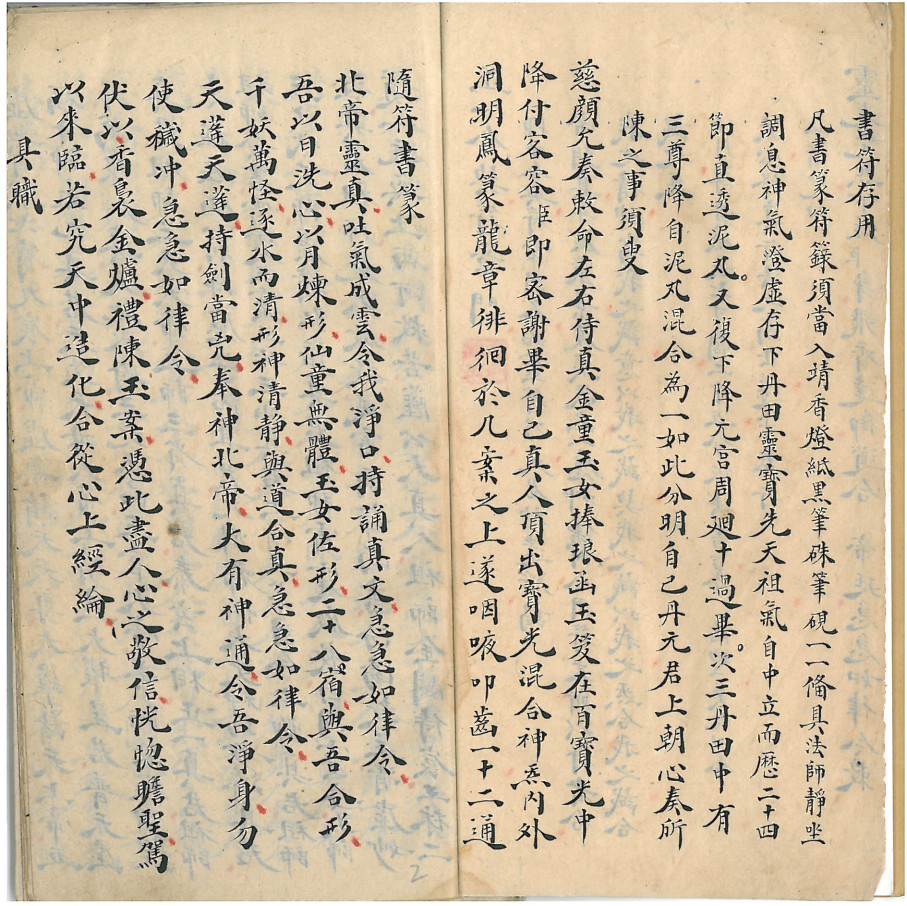 書符存用
凡書篆符籙須當入靖香燈紙黑筆硃筆硯一一俻具法師靜坐
調息神氣澄虛存下丹田靈寶先天祖氣自中立而歷二十四
節直透泥丸。又復下降元宫周廻十過畢次。三丹田中有
三尊降自泥丸混合為一如此分明自己丹元君上朝心奏所
陳之事須叟
慈顔允奏敕命左右侍真金童玉女捧琅函玉笈在百寶光中
降付容容臣即密謝畢自己真人頂出寶光混合神炁內外
洞明鳳篆龍章徘徊於几案之上遂咽唊叩齒一十二通
隨符書篆
北帝靈真吐氣成雲令我淨口持誦真文急急如律令
吾以日洗心以月煉形仙童無體玉女佐形二十八宿與吾合形
千妖萬怪逐水而清形神清静與道合真急急如律令
天蓬天蓬持劍當兇奉神北帝大有神通令吾淨身勿
使穢冲急急如律令
伏以香裊金爐禮陳玉案憑此盡人心之敬信恍惚瞻聖駕
以來臨若究天中造化合從心上經綸
具職
2